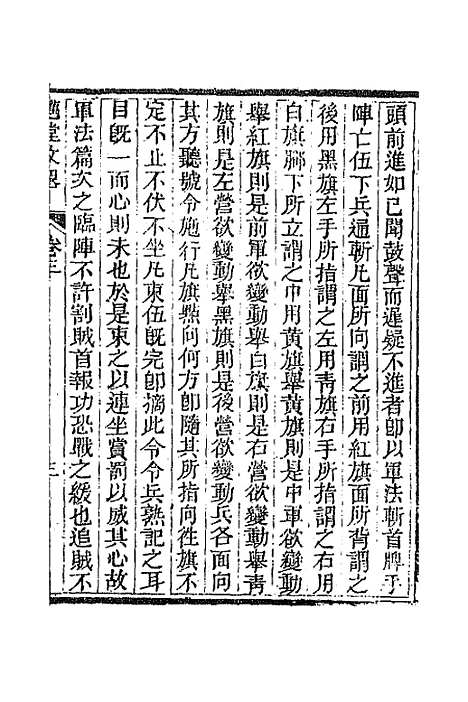 頭前進如已聞鼓聲而遲疑不進者卽以軍法斬首牌手
陣亡伍下兵通斬凡面所向謂之前用紅旗面所背謂之
後用黑旗左手所指謂之左用靑旗右手所指謂之右用
白旗腳下所立謂之中用黃旗舉黃旗則是中軍欲變動
舉紅旗則是前軍欲變動舉白旗則是右營欲變動舉靑
旗則是左營欲變動舉黑旗則是後營欲變動兵各面向
其方聽號令施行凡旗點向何方卽隨其所指向徃旗不
定不止不伏不坐凡束伍旣完卽摘此令令兵熟記之耳
目旣一而心則未也於是束之以連坐賞罰以威其心故
軍法篇次之臨陣不許割賊首報功恐戰之緩也追賊不
堂文畧 卷三 三